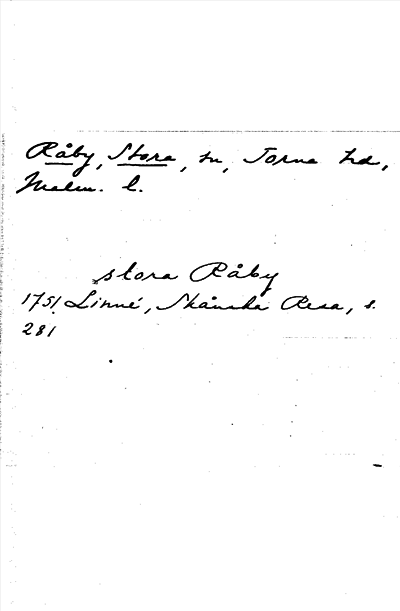 Råby, Stora, sn, Torna hd,
Malm. l.
stora Råby
1751 Linné, Skånska Resa, s.
281